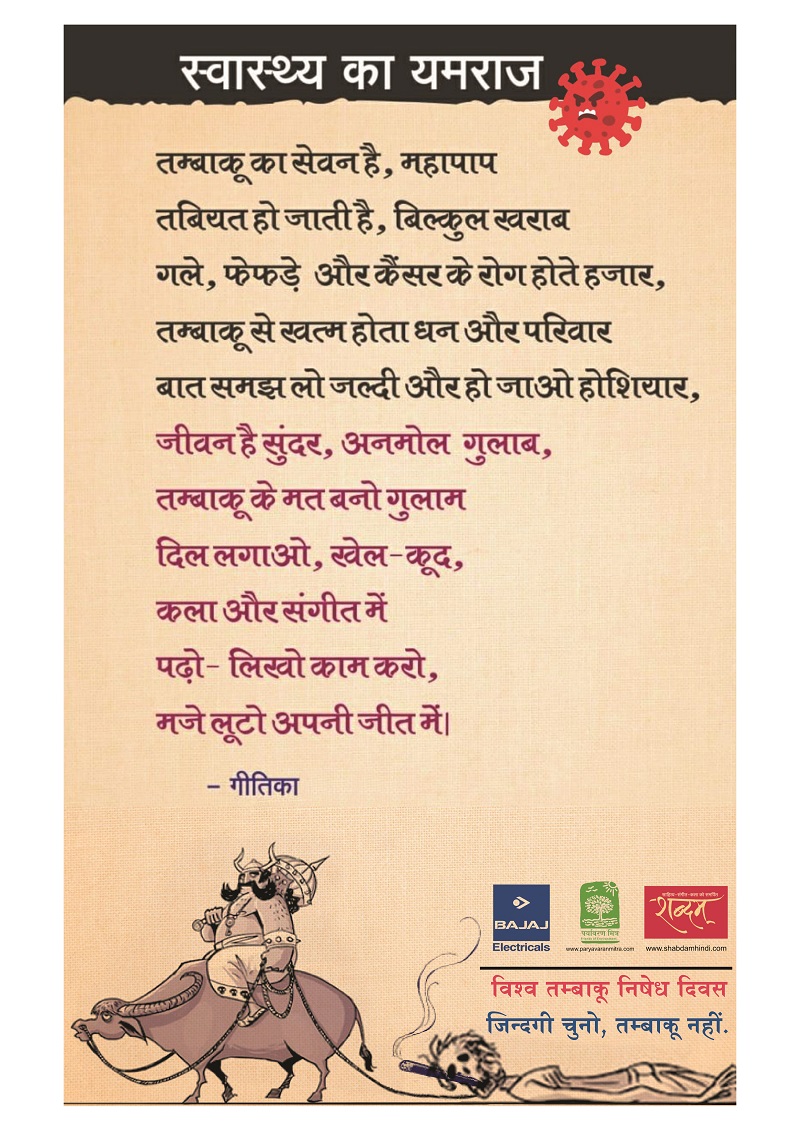 स्वास्थ्य का यमराज
तम्बाकू का सेवन है, महापाप
तबियत हो जाती है, बिल्कुल खराब
गले, फेफड़े और कैंसर के रोग होते हजार,
तम्बाकू से खत्म होता धन और परिवार
बात समझ लो जल्दी और हो जाओ होशियार,
जीवन है सुंदर, अनमोल गुलाब,
तम्बाकू के मत बनो गुलाम
दिल लगाओ, खेल-कूद,
कला और संगीत में
पढ़ो- लिखो काम करो,
मजे लूटो अपनी जीत में|
- गीतिका
BAJAJ
Electricals
पर्यावरण मित्र
www.paryavaranmitra.com
साहित्य-संगीत-कला को समर्पित
शब्दम्
www.shabdamhindi.com
विश्व तम्बाकू निषेध दिवस
जिन्दगी चुनो, तम्बाकू नहीं.